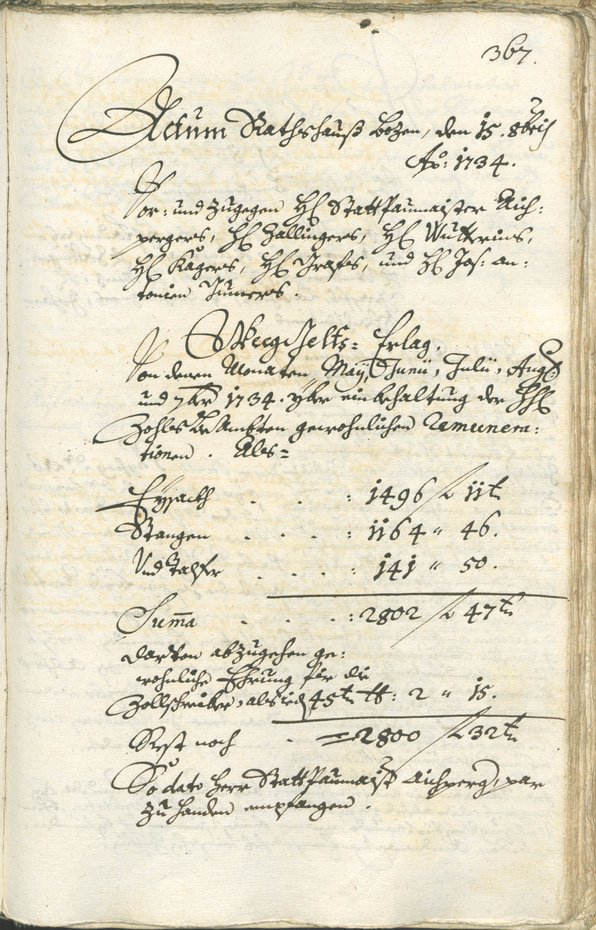 367.
Actum Rathshauß Bozen, den 15. 8bris
Aõ: 1734.
Vor: und Zugegen H: StattPaumaister Aich:
pergers, H: Zallingers, H: Wulterins,
H: Kagers, H: Grafes, und H: Jos: An:
tonien Jnneres.
Weeg Gelts= Erlag.
Von denen Monaten Maÿ, Junii, Julii, Aug:
und 7ber 1734. yber einbehaltung der HH:
Zohlsbeambten gewohnlichen Remunera:
tionen. Als=
Eysackh . . . : 1496 f 11 k
Stangen . . . : 1164 " 46.
Und Talfer . . . : 141 " 50.
Summa . . : 2802 f 47 k
darvon abzugehen ge:
wohnliche Ehrung für die
Zollschreiber, als ieden 45 k : 2 " 15.
Rest noch . = 2800 f 32 k
So dato Herr StattPaumaister Aichperger, par
zu handen empfangen.